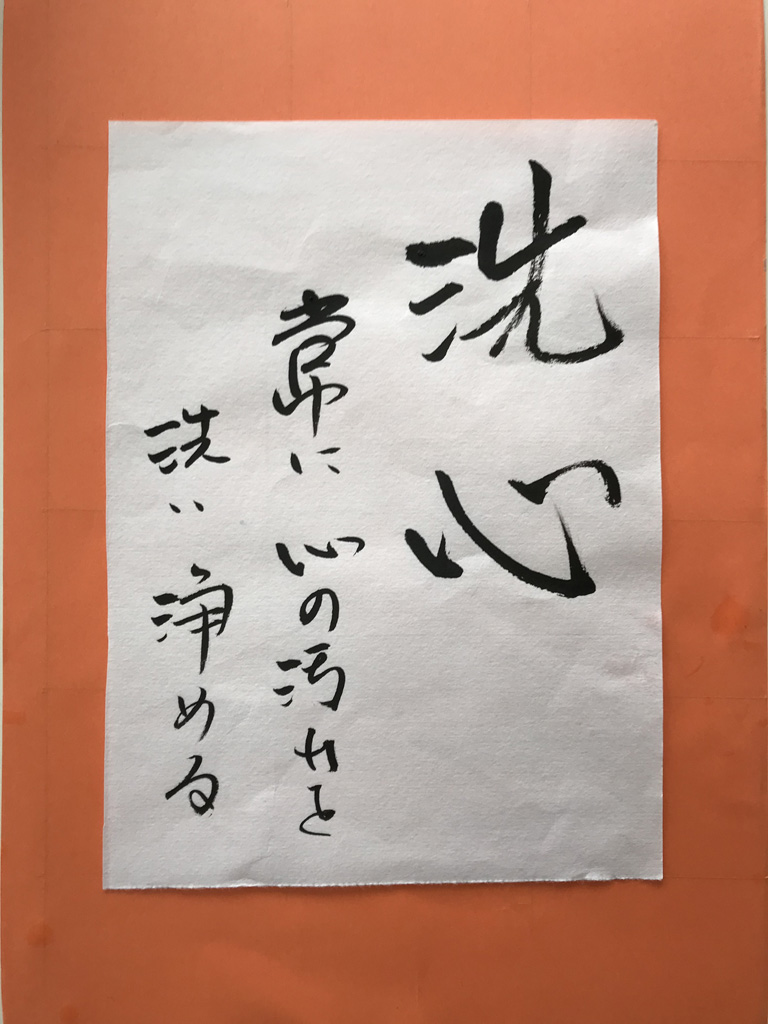 洗心
常に心の汚れを
洗い浄める